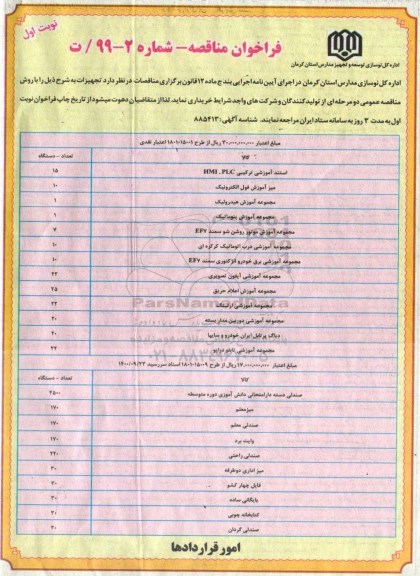 نوبت اول
فراخوان مناقصه - شماره ۲-۹۹ / ت
اداره کل نوسازی توسعه و تجهیز مدارس استان کرمان
اداره کل نوسازی مدارس استان کرمان در اجرای آیین نامه اجرایی بند ج ماده ۱۲ قانون برگزاری مناقصات در نظر دارد تجهیزات به شرح ذیل را با روش
مناقصه عمومی دو مرحله ای از تولیدکنندگان و شرکت های واجد شرایط خریداری نماید. لذا از متقاضیان دعوت میشود از تاریخ چاپ فراخوان نوبت
اول به مدت ۳ روز به سامانه ستاد ایران مراجعه نمایند. شناسه آگهی: ۸۸۵۴۱۳
مبلغ اعتبار ۳۰,۰۰۰,۰۰۰,۰۰۰ ریال از طرح ۱۸۰۱۰۱۵۰۰۱ اعتبار نقدی
کالا تعداد - دستگاه
استند آموزشی ترکیبی HMI , PLC ۱۵
میز آموزش فول الکترونیک ۱۰
مجموعه آموزش هیدرولیک ۱
مجموعه آموزش پنوماتیک ۱
مجموعه آموزش موتور روشن شو سمند EF۷ ۷
مجموعه آموزشی درب اتوماتیک کرکره ای ۱۰
مجموعه آموزشی برق خودرو انژکتوری سمند EF۷ ۱۰
مجموعه آموزشی آیفون تصویری ۲۳
مجموعه آموزش اعلام حریق ۲۵
مجموعه آموزشی ارتینگ ۲۴
مجموعه آموزشی دوربین مدار بسته ۲۰
دیاگ پرتابل ایران خودرو و سایپا ۲۰
مجموعه آموزشی تابلو درایو ۲۲
ParsNamadData
۰۲۱-۸۸۳۴۹۶۷۰-۵
مبلغ اعتبار ۱۷,۰۰۰,۰۰۰,۰۰۰ ریال از طرح ۱۸۰۱۰۱۵۰۰۹ اسناد سررسید ۱۴۰۰/۰۹/۲۳
کالا تعداد - دستگاه
صندلی دسته دار امتحانی دانش آموزی دوره متوسطه ۲۵۰۰
میز معلم ۱۷۰
صندلی معلم ۱۷۰
وایت برد ۱۷۰
صندلی راحتی ۲۴۰
میز اداری دوطرفه ۳۰
فایل چهار کشو ۳۰
بایگانی ساده ۳۰
کتابخانه چوبی ۳۰
صندلی گردان ۳۰
امور قراردادها